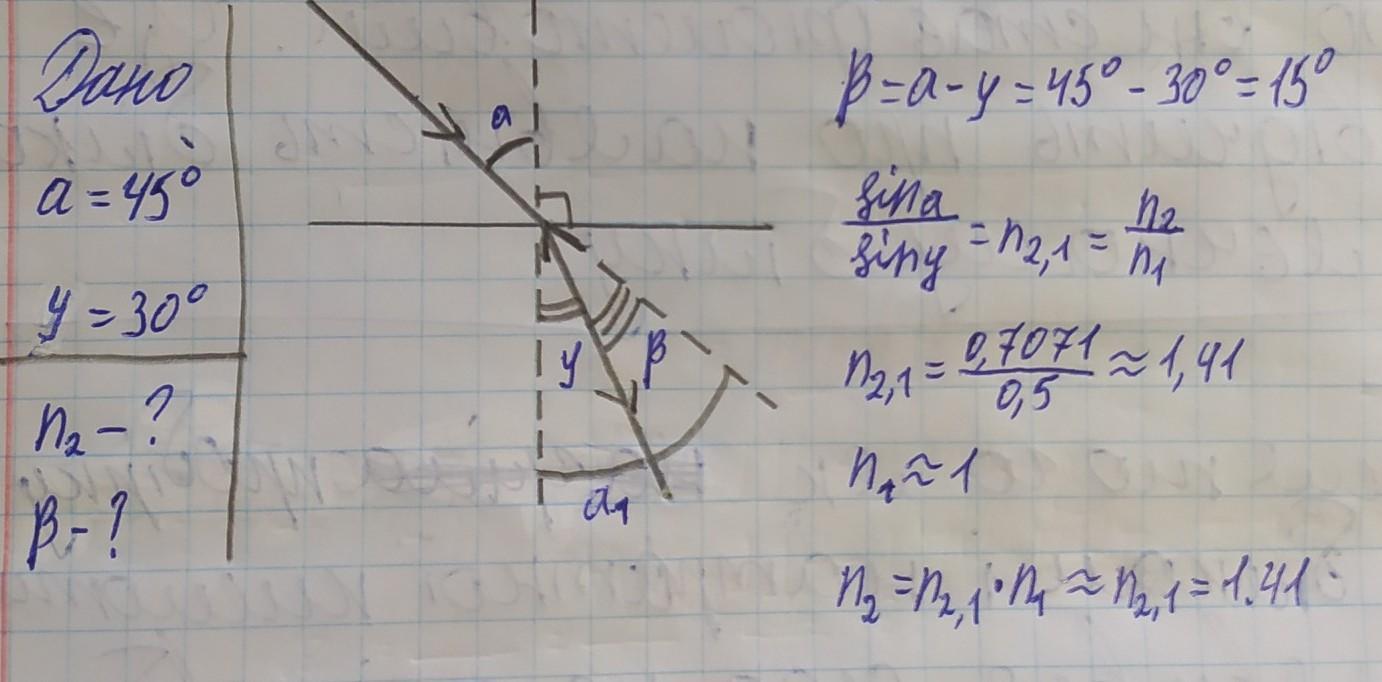 Дано
a = 45°
y = 30°
n₂ - ?
β - ?
a
y
β
a₁
β = a - y = 45° - 30° = 15°
sin a / sin y = n₂,₁ = n₂ / n₁
n₂,₁ = 0,7071 / 0,5 ≈ 1,41
n₁ ≈ 1
n₂ = n₂,₁ · n₁ ≈ n₂,₁ = 1.41